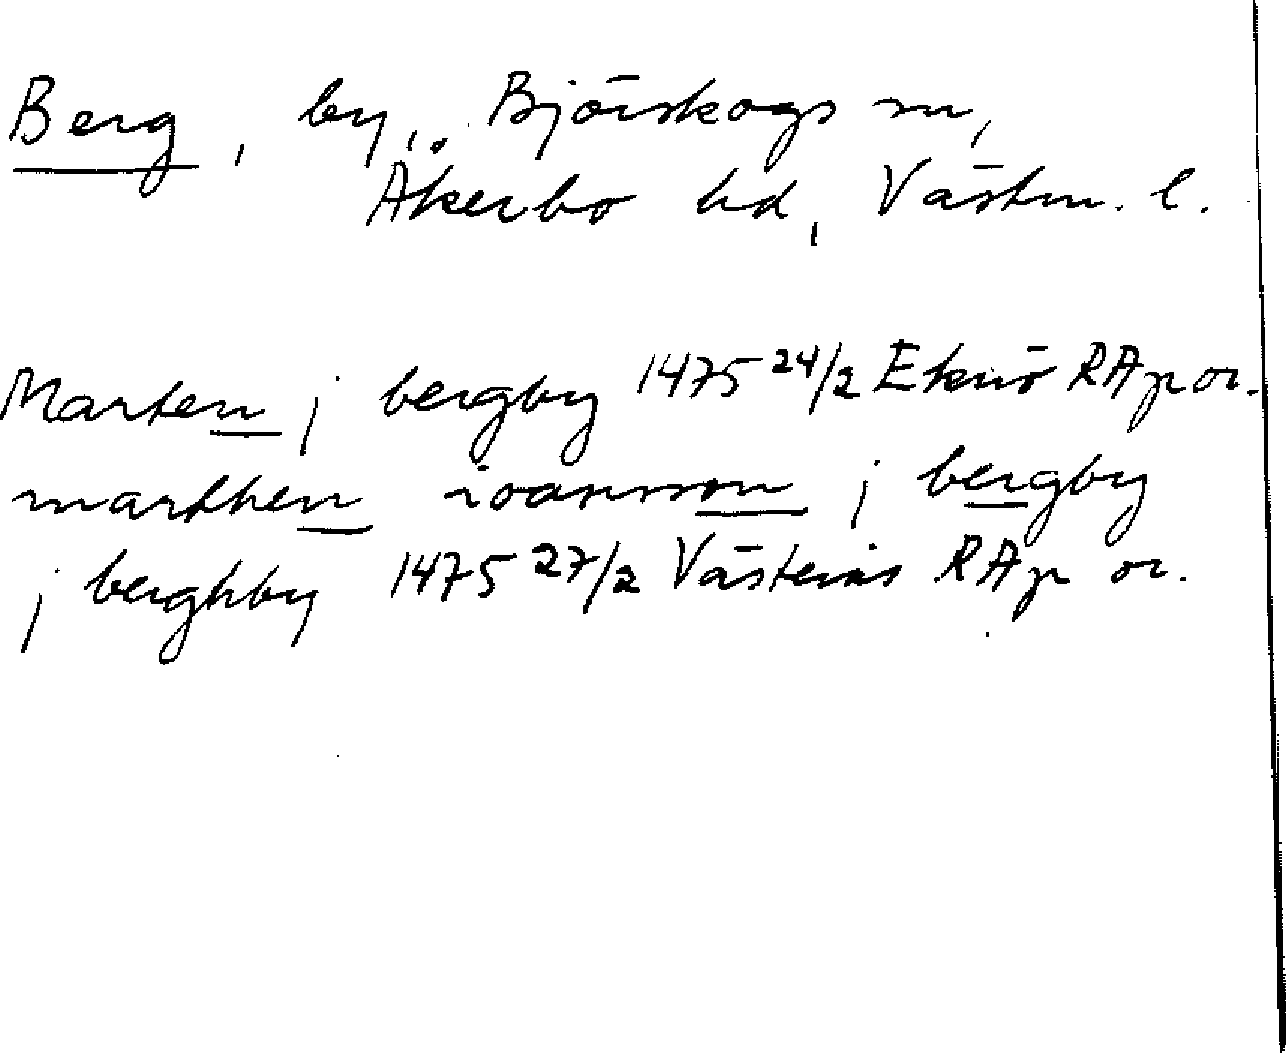 Berg, by, Björskogs sn,
Åkerbo hd, Västm. l.
Marten j bergby 1475 24/2 Eknö RAp or.
marthen ioansson j bergby
j berghby 1475 27/2 Västerås RAp or.